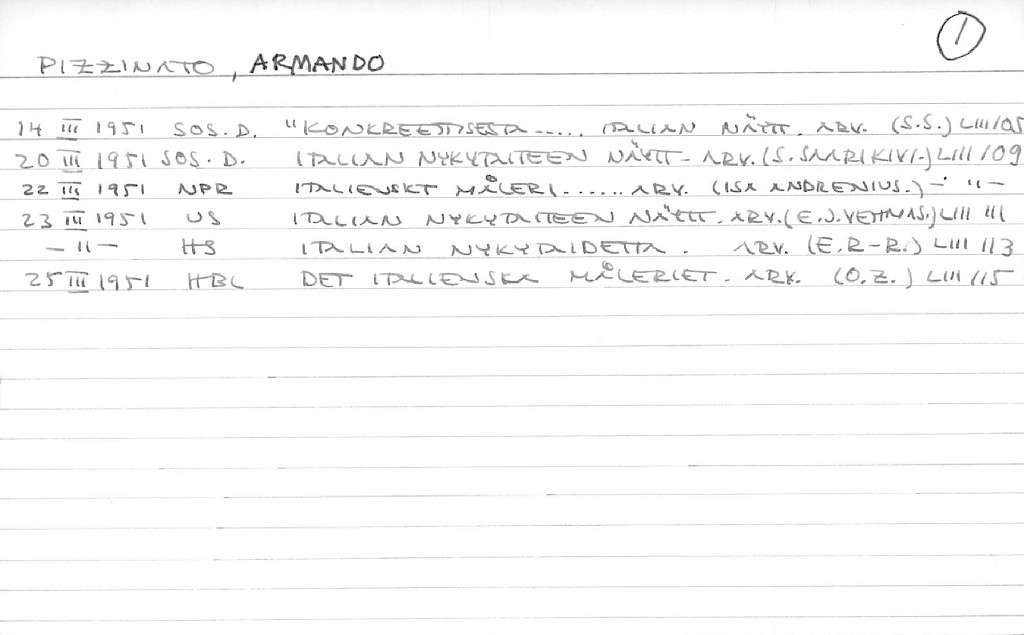 1
PIZZINATO, ARMANDO
14 III 1951 SOS. D. "KONKREETTISESTA ..... ITALIAN NÄYTT. ARV. (S.S.) LIII/05
20 III 1951 SOS. D. ITALIAN NYKYTAITEEN NÄYTT - ARV. (S. SAARIKIVI.) LIII/09
22 III 1951 NPR ITALIENSKT MÅLERI...... ARV. (ISA ANDRENIUS.) - " -
23 III 1951 US ITALIAN NYKYTAITEEN NÄYTT. ARV. (E.J. VEHMAS.) LIII 111
- " - HS ITALIAN NYKYTAIDETTA. ARV. (E.R-R.) LIII 113
25 III 1951 HBL DET ITALIENSKA MÅLERIET. ARV. (O.Z.) LIII 115